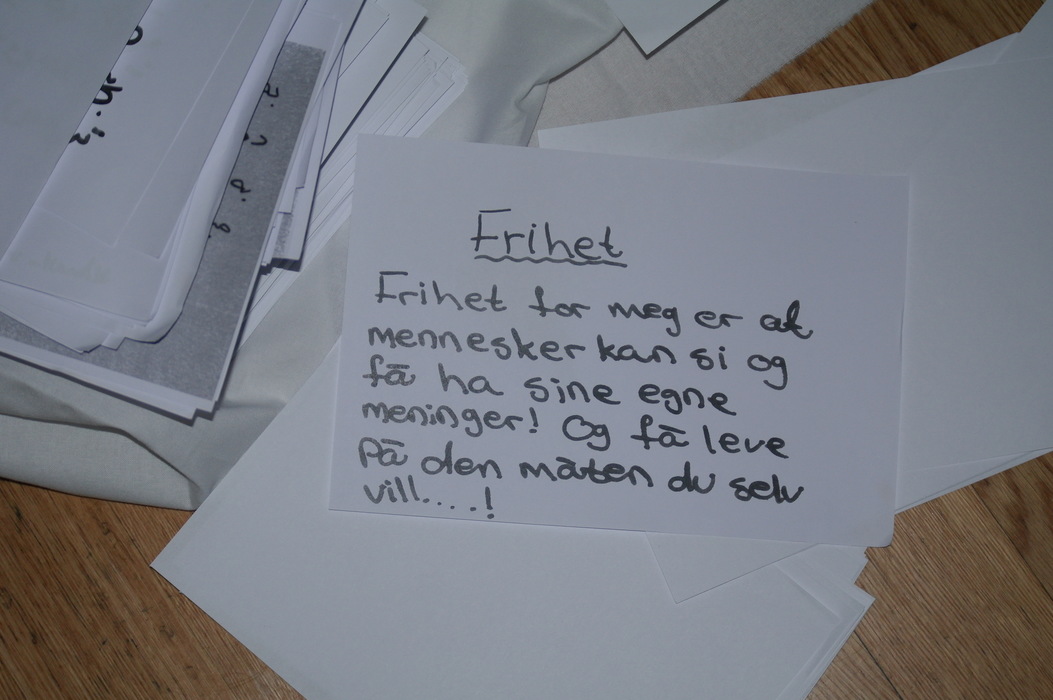 Frihet
Frihet for meg er at
mennesker kan si og
få ha sine egne
meninger! Og få leve
På den måten du selv
vill....!